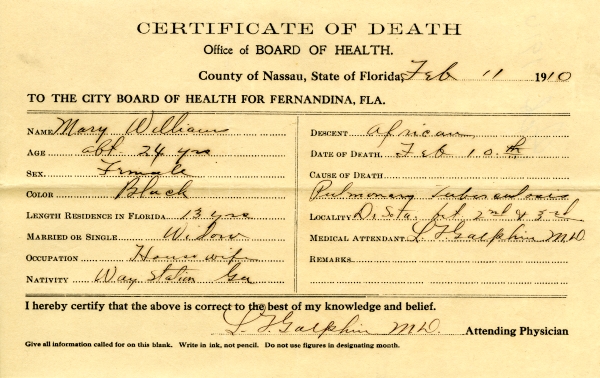 CERTIFICATE OF DEATH
Office of BOARD OF HEALTH.
County of Nassau, State of Florida, Feb 11 1910
TO THE CITY BOARD OF HEALTH FOR FERNANDINA, FLA.
NAME Mary Williams
AGE abt 24 yrs
SEX. Female
COLOR Black
LENGTH RESIDENCE IN FLORIDA 13 yrs
MARRIED OR SINGLE Widow
OCCUPATION Housewife
NATIVITY Way Station Ga
DESCENT African
DATE OF DEATH. Feb 10th
CAUSE OF DEATH
Pulmonary Tuberculosis
LOCALITY D. Sta. bt 2nd & 3rd
MEDICAL ATTENDANT. MD
REMARKS
I hereby certify that the above is correct to the best of my knowledge and belief.
MD. Attending Physician
Give all information called for on this blank. Write in ink, not pencil. Do not use figures in designating month.